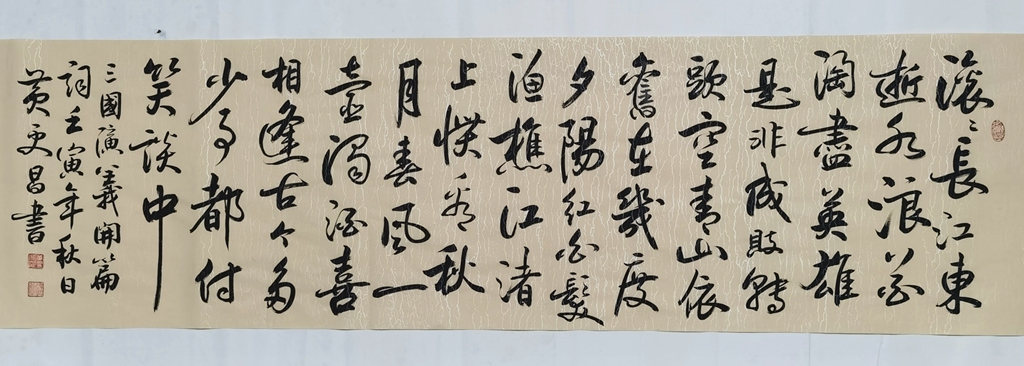 滚〻長江東
逝水浪花
淘盡英雄
是非成敗轉
頭空青山依
舊在幾度
夕陽紅白髮
渔樵江渚
上惯看秋
月春風一
壺濁酒喜
相逢古今多
少事都付
笑談中
三國演義開篇
詞壬寅年秋日
黄更昌書